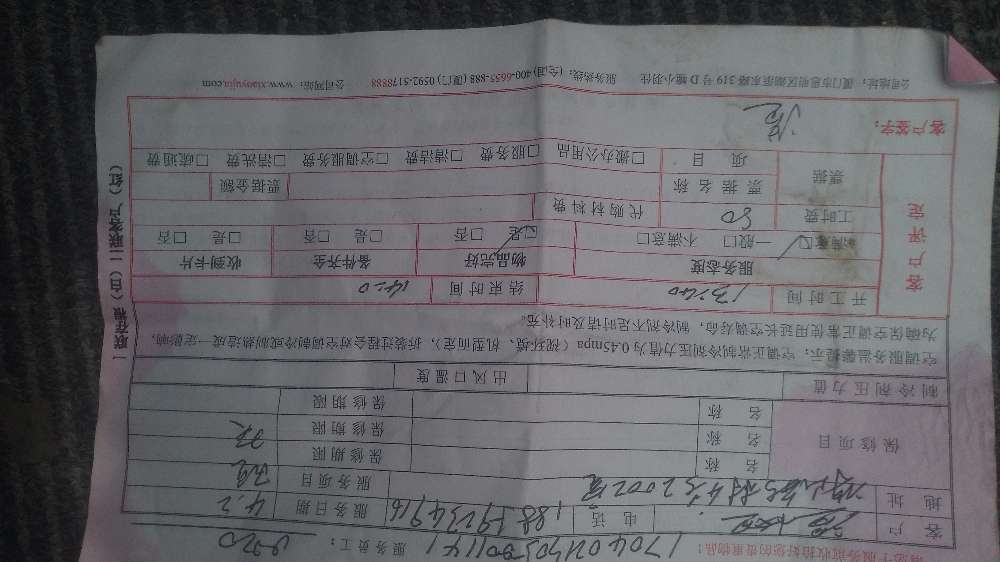 请您于服务前收拾好您的贵重物品! 17040240500 服务员工:
客户 电话 服务日期 4.2
地址 2002室 服务项目
保修项目 名称 保修期限
名称 保修期限
名称 保修期限
制冷剂压力值 出风口温度
空调服务温馨提示:空调正常制冷剂压力值为0.45mpa(视环境、机型而定),拆装过程会对空调制冷或制热造成一定影响,
为确保空调正常使用延长空调寿命,制冷剂不足时请及时补充。
客户评定 开工时间 13:40 结束时间 14:20
服务态度 物品完好 备件齐全 收到卡片
满意☑ 一般□ 不满意□ 是☑ 否□ 是□ 否□ 是□ 否□
工时费 80 代购材料费
票据 票据名称 票据金额
项目 □搬办公用品 □服务费 □清洁费 □空调服务费 □清洗费 □疏通费
客户签字:
公司地址:厦门市思明区湖滨东路319号D幢小羽佳 服务热线:(全国)400-6655-888 (厦门)0592-5178888 公司网站:www.xiaoyujia.com
一联存根(白)二联客户(红)